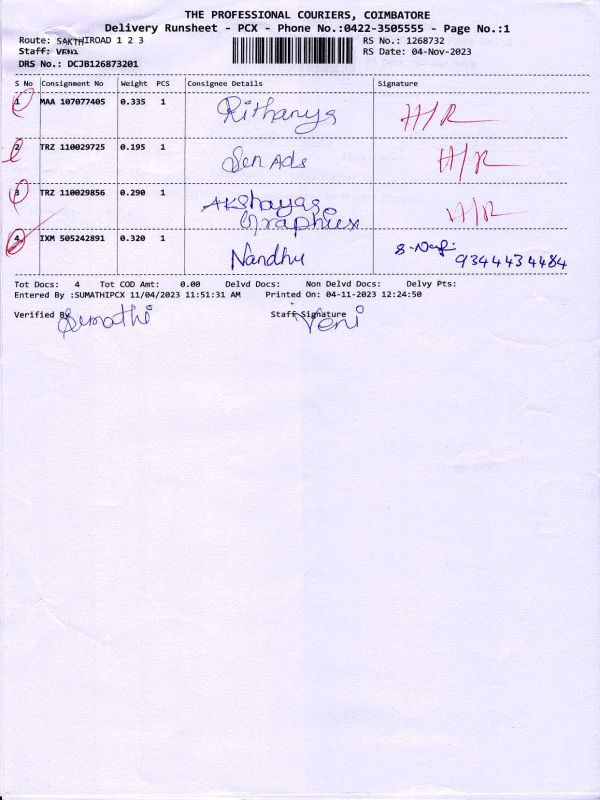 THE PROFESSIONAL COURIERS, COIMBATORE
Delivery Runsheet - PCX - Phone No.:0422-3505555 - Page No.:1
Route: SAKTHIROAD 1 2 3 RS No.: 1268732
Staff: VENI RS Date: 04-Nov-2023
DRS No.: DCJB126873201
S No Consignment No Weight PCS Consignee Details Signature
1 MAA 107077405 0.335 1 Rithanya H/R
2 TRZ 110029725 0.195 1 Sen Ads H/R
3 TRZ 110029856 0.290 1 Akshayas H/R
Graphiex
4 IXM 505242891 0.320 1 Nandhu
9344434484
Tot Docs: 4 Tot COD Amt: 0.00 Delvd Docs: Non Delvd Docs: Delvy Pts:
Entered By :SUMATHIPCX 11/04/2023 11:51:31 AM Printed On: 04-11-2023 12:24:50
Verified By Sumathi Staff Signature Veni